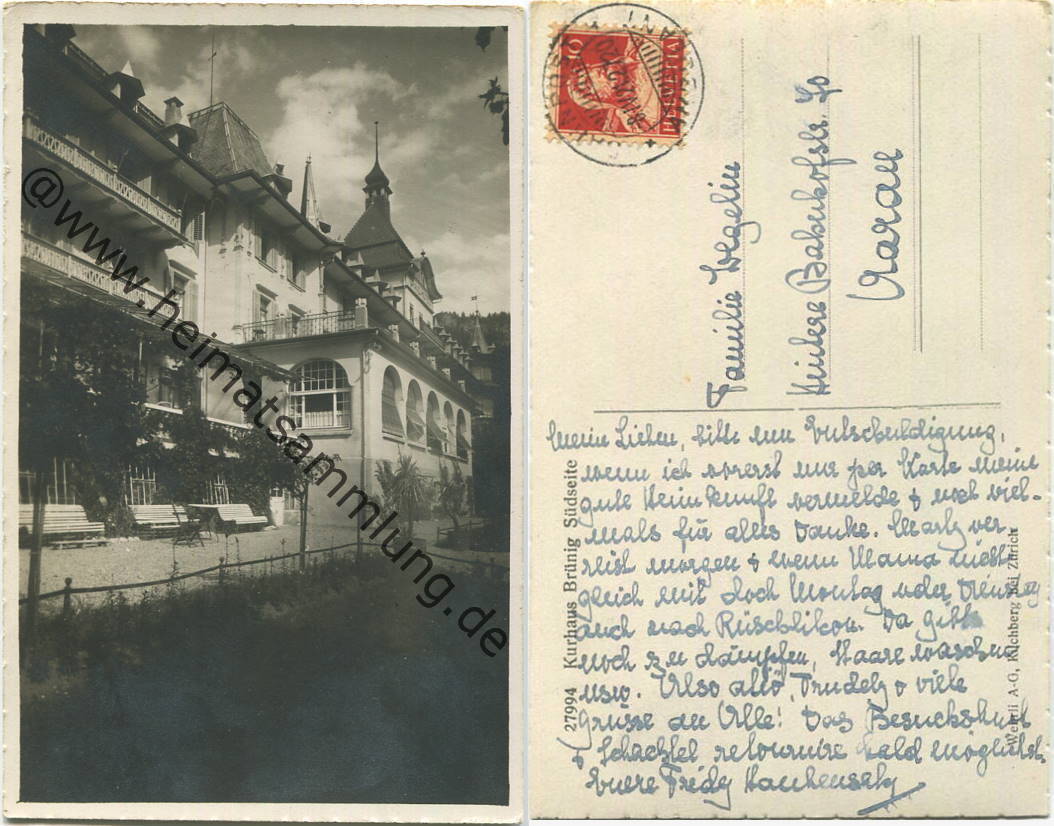 @www.heimatsammlung.de
HELVETIA
10
Familie Wegelin
Hintere Bahnhofstr. 90
Aarau
27994 Kurhaus Brünig Südseite
Wehrli A-G, Kilchberg bei Zürich
Meine Lieben, bitte um Entschuldigung,
wenn ich vorerst nur per Karte meine
gute Heimkunft vermelde & noch viel-
mals für alles danke. Marly ver-
reist morgen & wenn Mama nicht
gleich mit doch Montag oder Dienstag
auch nach Rüschlikon. Da gibts
noch zu dämpfen, Haare waschen
usw. Also ally, Trudely & viele
Grüsse an Alle! Das Besuchshuet
& Schachtel retourniere bald möglichst.
Euere Fridy